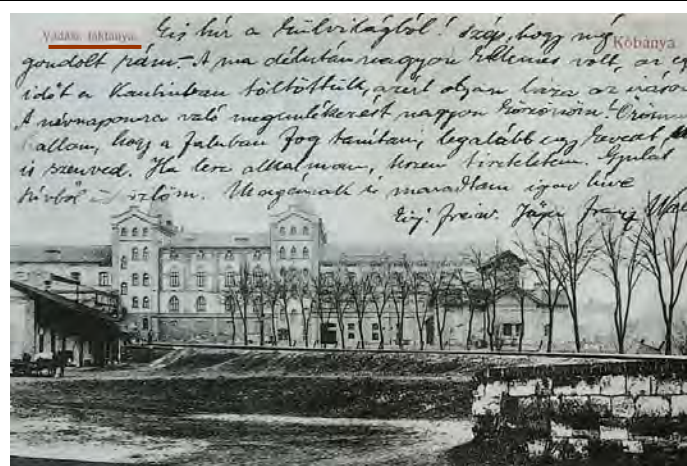 Vadász laktanya. Kis hír a külvilágból! Szép, hogy még Kőbánya
gondolt rám. - A ma délután nagyon kellemes volt, az eg
időt a Kantinban töltöttük, azért olyan az írásom
A névnapomra való megemlékezést nagyon köszönöm! Örömmel
hallom, hogy a faluban fog tanítani, legalább egy keveset
is szenved. Ha lesz alkalmam, teszem tiszteletem. Gyulát
szívből üdvözlöm. Magának is maradtam igaz híve
Einj. freiw. Jäger Franz